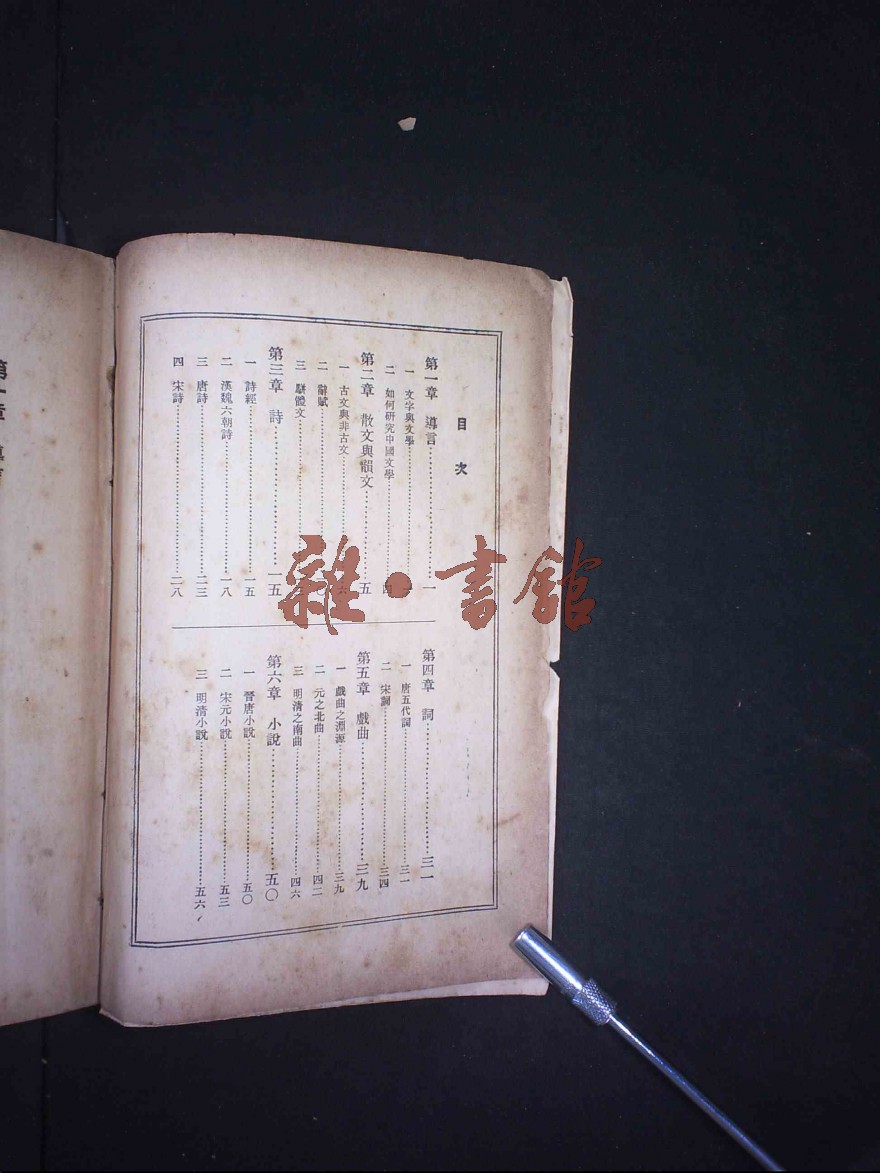 目次
第一章 導言……一
一 文字與文學……一
二 如何研究中國文學……四
第二章 散文與韻文……五
一 古文與非古文……六
二 辭賦……〇
三 駢體文……
第三章 詩……一五
一 詩經……一五
二 漢魏六朝詩……一八
三 唐詩……二三
四 宋詩……二八
第四章 詞……三一
一 唐五代詞……三一
二 宋詞……三四
第五章 戲曲……三九
一 戲曲之淵源……三九
二 元之北曲……四二
三 明清之南曲……四六
第六章 小說……五〇
一 晉唐小說……五〇
二 宋元小說……五三
三 明清小說……五六
雜·書館
第一章